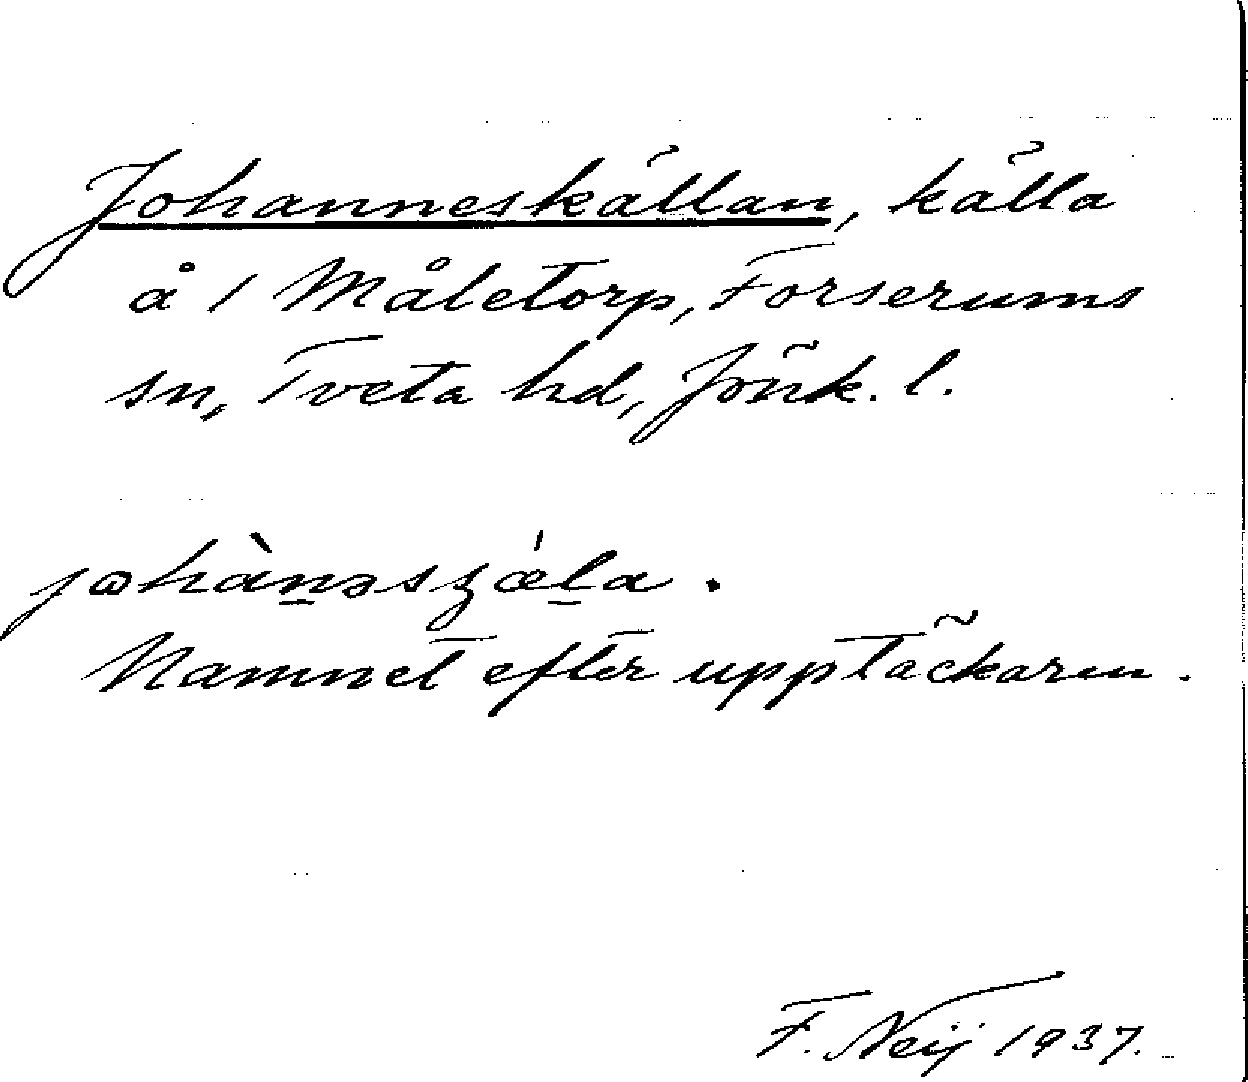 Johanneskällan, källa
å 1 Måletorp, Forserums
sn, Tveta hd, Jönk. l.
Namnet efter upptäckaren.
F. Neij 1937.